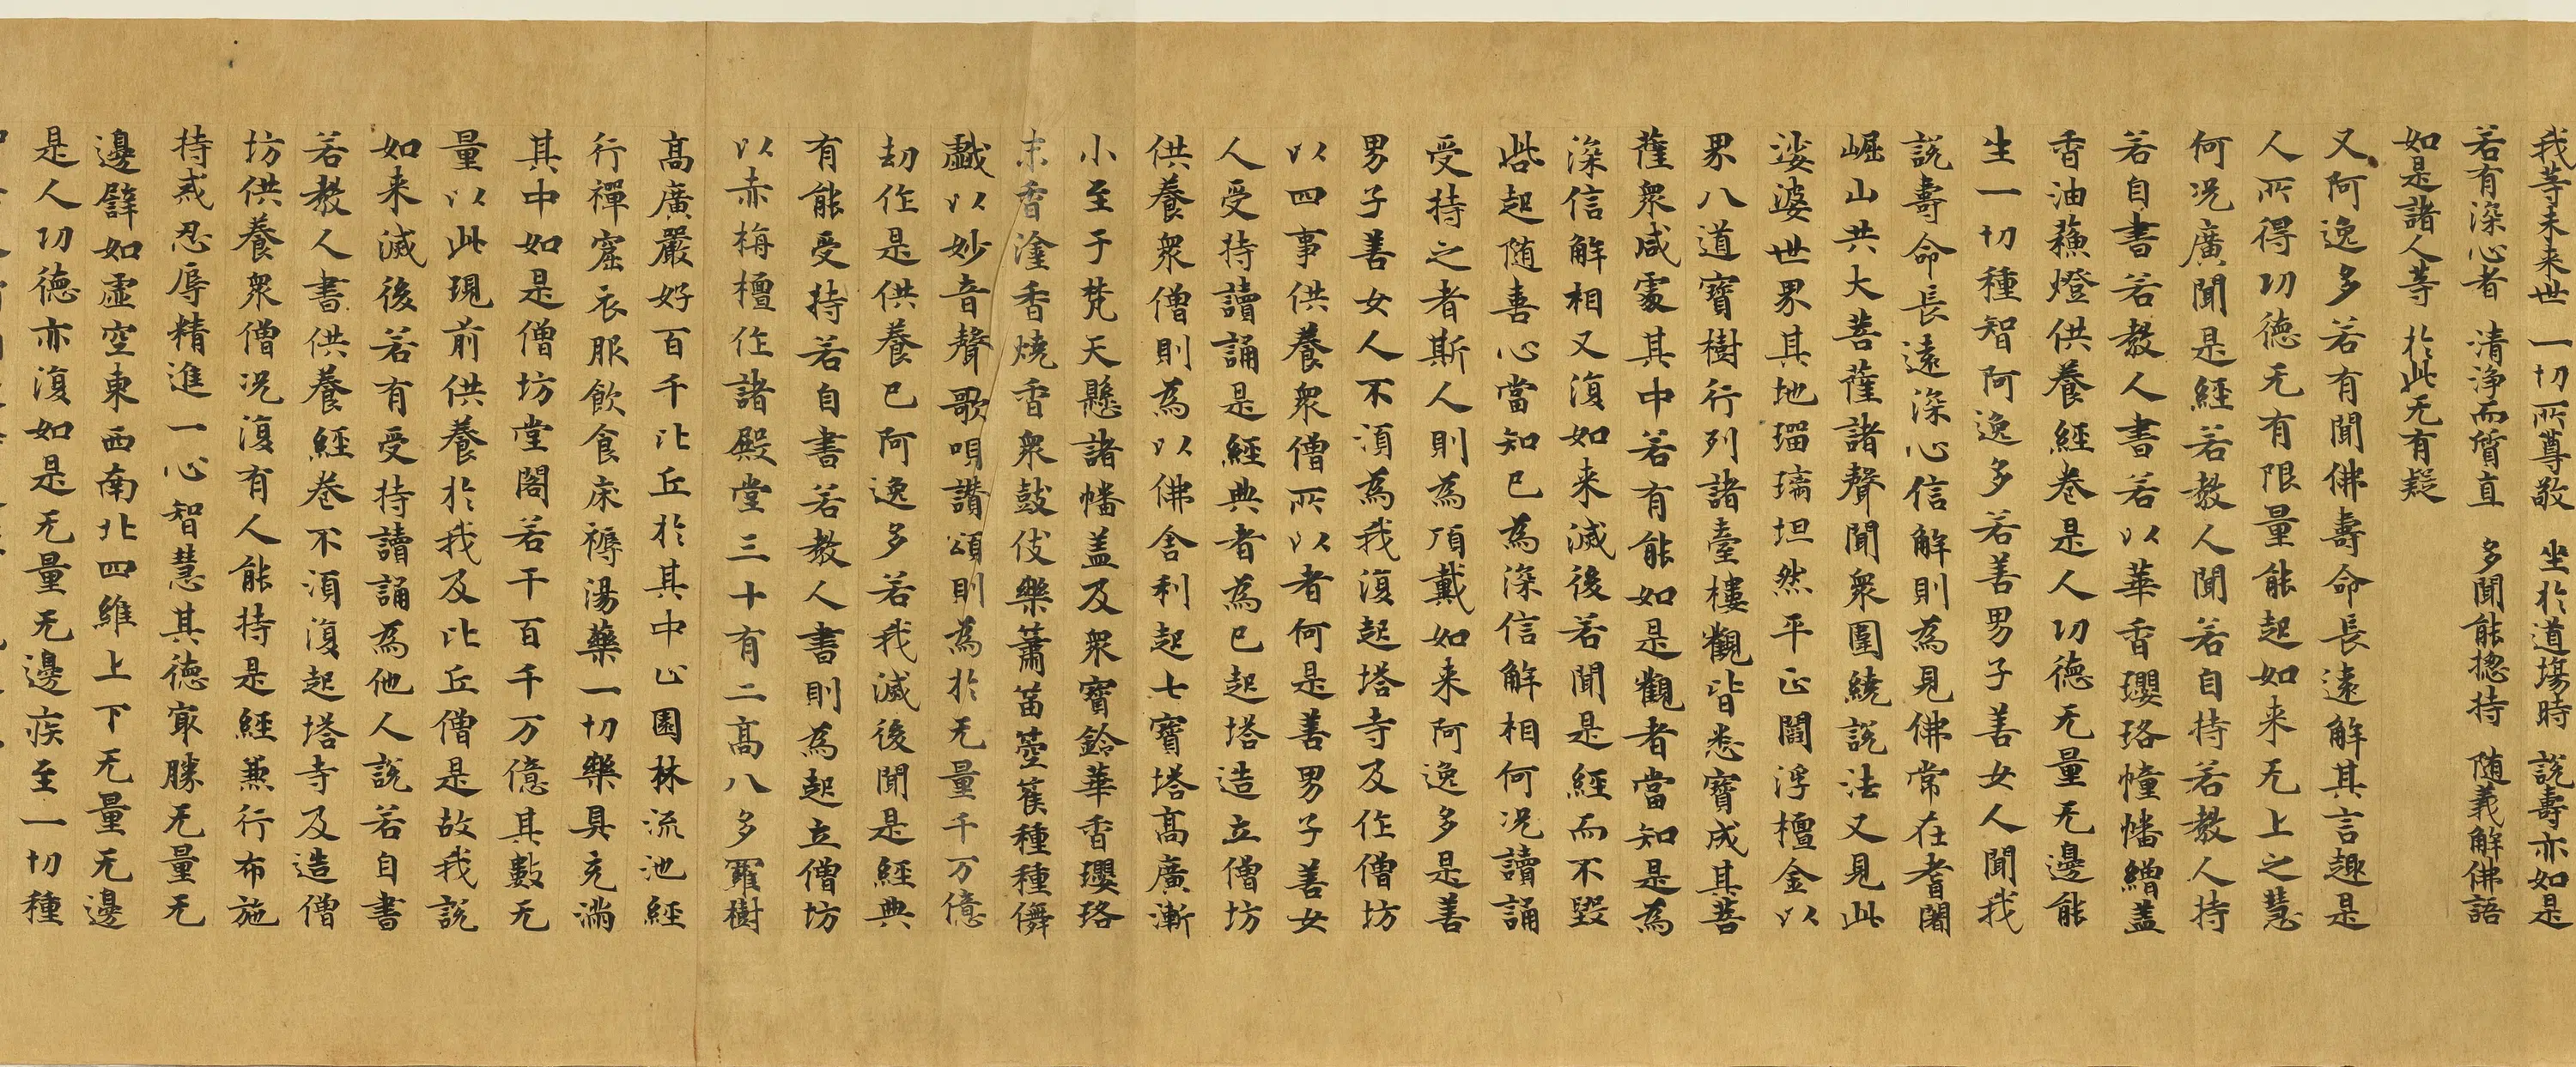 我等未来世　一切所尊敬　坐於道場時　説壽亦如是
若有深心者　清浄而質直　多聞能揔持　随義解佛語
如是諸人等　於此无有疑
又阿逸多若有聞佛壽命長遠解其言趣是
人所得功徳无有限量能起如来无上之慧
何况廣聞是經若教人聞若自持若教人持
若自書若教人書若以華香瓔珞幢幡繒盖
香油蘓燈供養經巻是人功徳无量无邊能
生一切種智阿逸多若善男子善女人聞我
説壽命長遠深心信解則為見佛常在耆闍
崛山共大菩薩諸聲聞衆圍繞説法又見此
娑婆世界其地瑠璃坦然平正閻浮檀金以
界八道寶樹行列諸臺樓觀皆悉寶成其菩
薩衆咸處其中若有能如是觀者當知是為
深信解相又復如来滅後若聞是經而不毀
呰起随喜心當知已為深信解相何况讀誦
受持之者斯人則為頂戴如来阿逸多是善
男子善女人不湏為我復起塔寺及作僧坊
以四事供養衆僧所以者何是善男子善女
人受持讀誦是經典者為已起塔造立僧坊
供養衆僧則為以佛舎利起七寶塔高廣漸
小至于梵天懸諸幡盖及衆寶鈴華香瓔珞
末香塗香燒香衆鼓伎樂簫笛箜篌種種儛
戯以妙音聲歌唄讃頌則為於无量千万億
劫作是供養已阿逸多若我滅後聞是經典
有能受持若自書若教人書則為起立僧坊
以赤栴檀作諸殿堂三十有二高八多羅樹
高廣嚴好百千比丘於其中止園林流池經
行禪窟衣服飲食床褥湯藥一切樂具充滿
其中如是僧坊堂閣若干百千万億其數无
量以此現前供養於我及比丘僧是故我説
如来滅後若有受持讀誦為他人説若自書
若教人書供養經巻不湏復起塔寺及造僧
坊供養衆僧况復有人能持是經兼行布施
持戒忍辱精進一心智慧其徳冣勝无量无
邊譬如虚空東西南北四維上下无量无邊
是人功徳亦復如是无量无邊疾至一切種